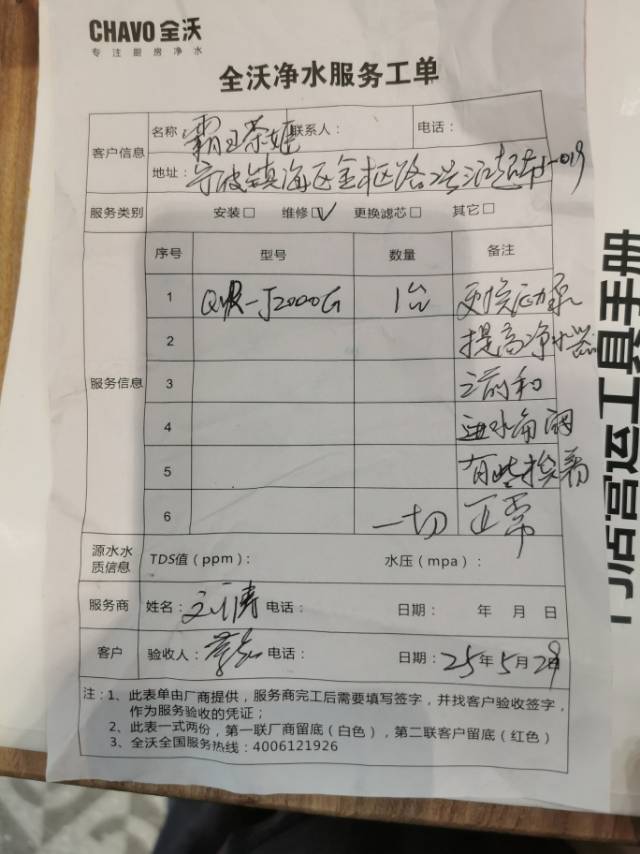 CHAVO 全沃
专注厨房净水
全沃净水服务工单
客户信息
名称 霸王茶姬 联系人： 电话：
地址： 宁波镇海区金枢路
1-019
服务类别 安装□ 维修☑ 更换滤芯□ 其它□
服务信息
序号 型号 数量 备注
1 QYR-J2000G 1台 更换压力泵
2 提高净水器
3 之前和
4 进水角阀
5 有些换新
6 一切正常
源水水质信息 TDS值（ppm）： 水压（mpa）：
服务商 姓名： 涛 电话： 日期： 年 月 日
客户 验收人： 电话： 日期：25年5月29
注：1、此表单由厂商提供，服务商完工后需要填写签字，并找客户验收签字，
作为服务验收的凭证；
2、此表一式两份，第一联厂商留底（白色），第二联客户留底（红色）
3、全沃全国服务热线：4006121926
门店营运工具手册